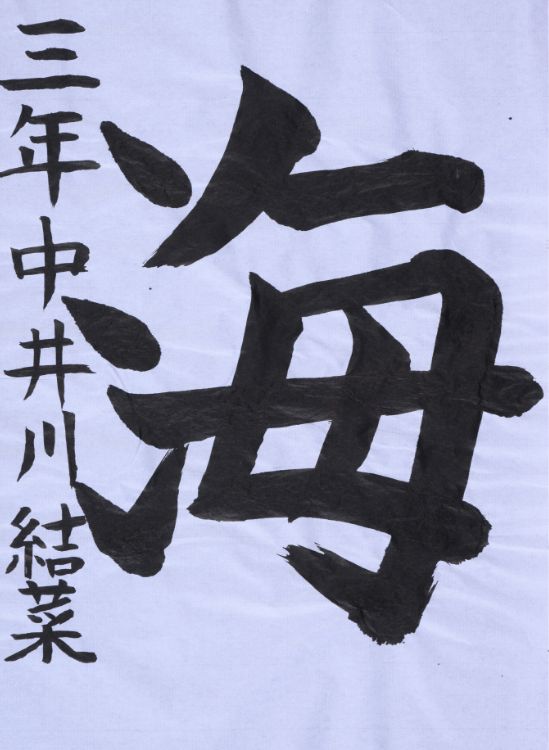 海
三年中井川結菜